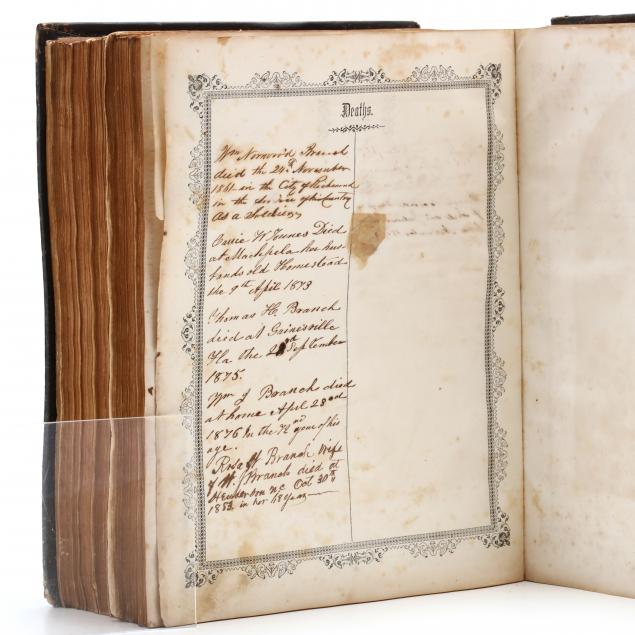 Deaths.
Wm Norwood Branch
died the 24th November
1861 in the City of Richmond
in the service of his Country
As a Soldier
W Tounes Died
at Machpela her hus
bands old Homestead
the 9th April 1873
Thomas H. Branch
died at Gainesville
Fla the September
1875.
Wm J Branch died
at home April 23rd
1876 In the 72nd year of his
age.
Rosa H Branch Wife
of W. Branch died at
Henderson N.C Oct 30th
in her Year